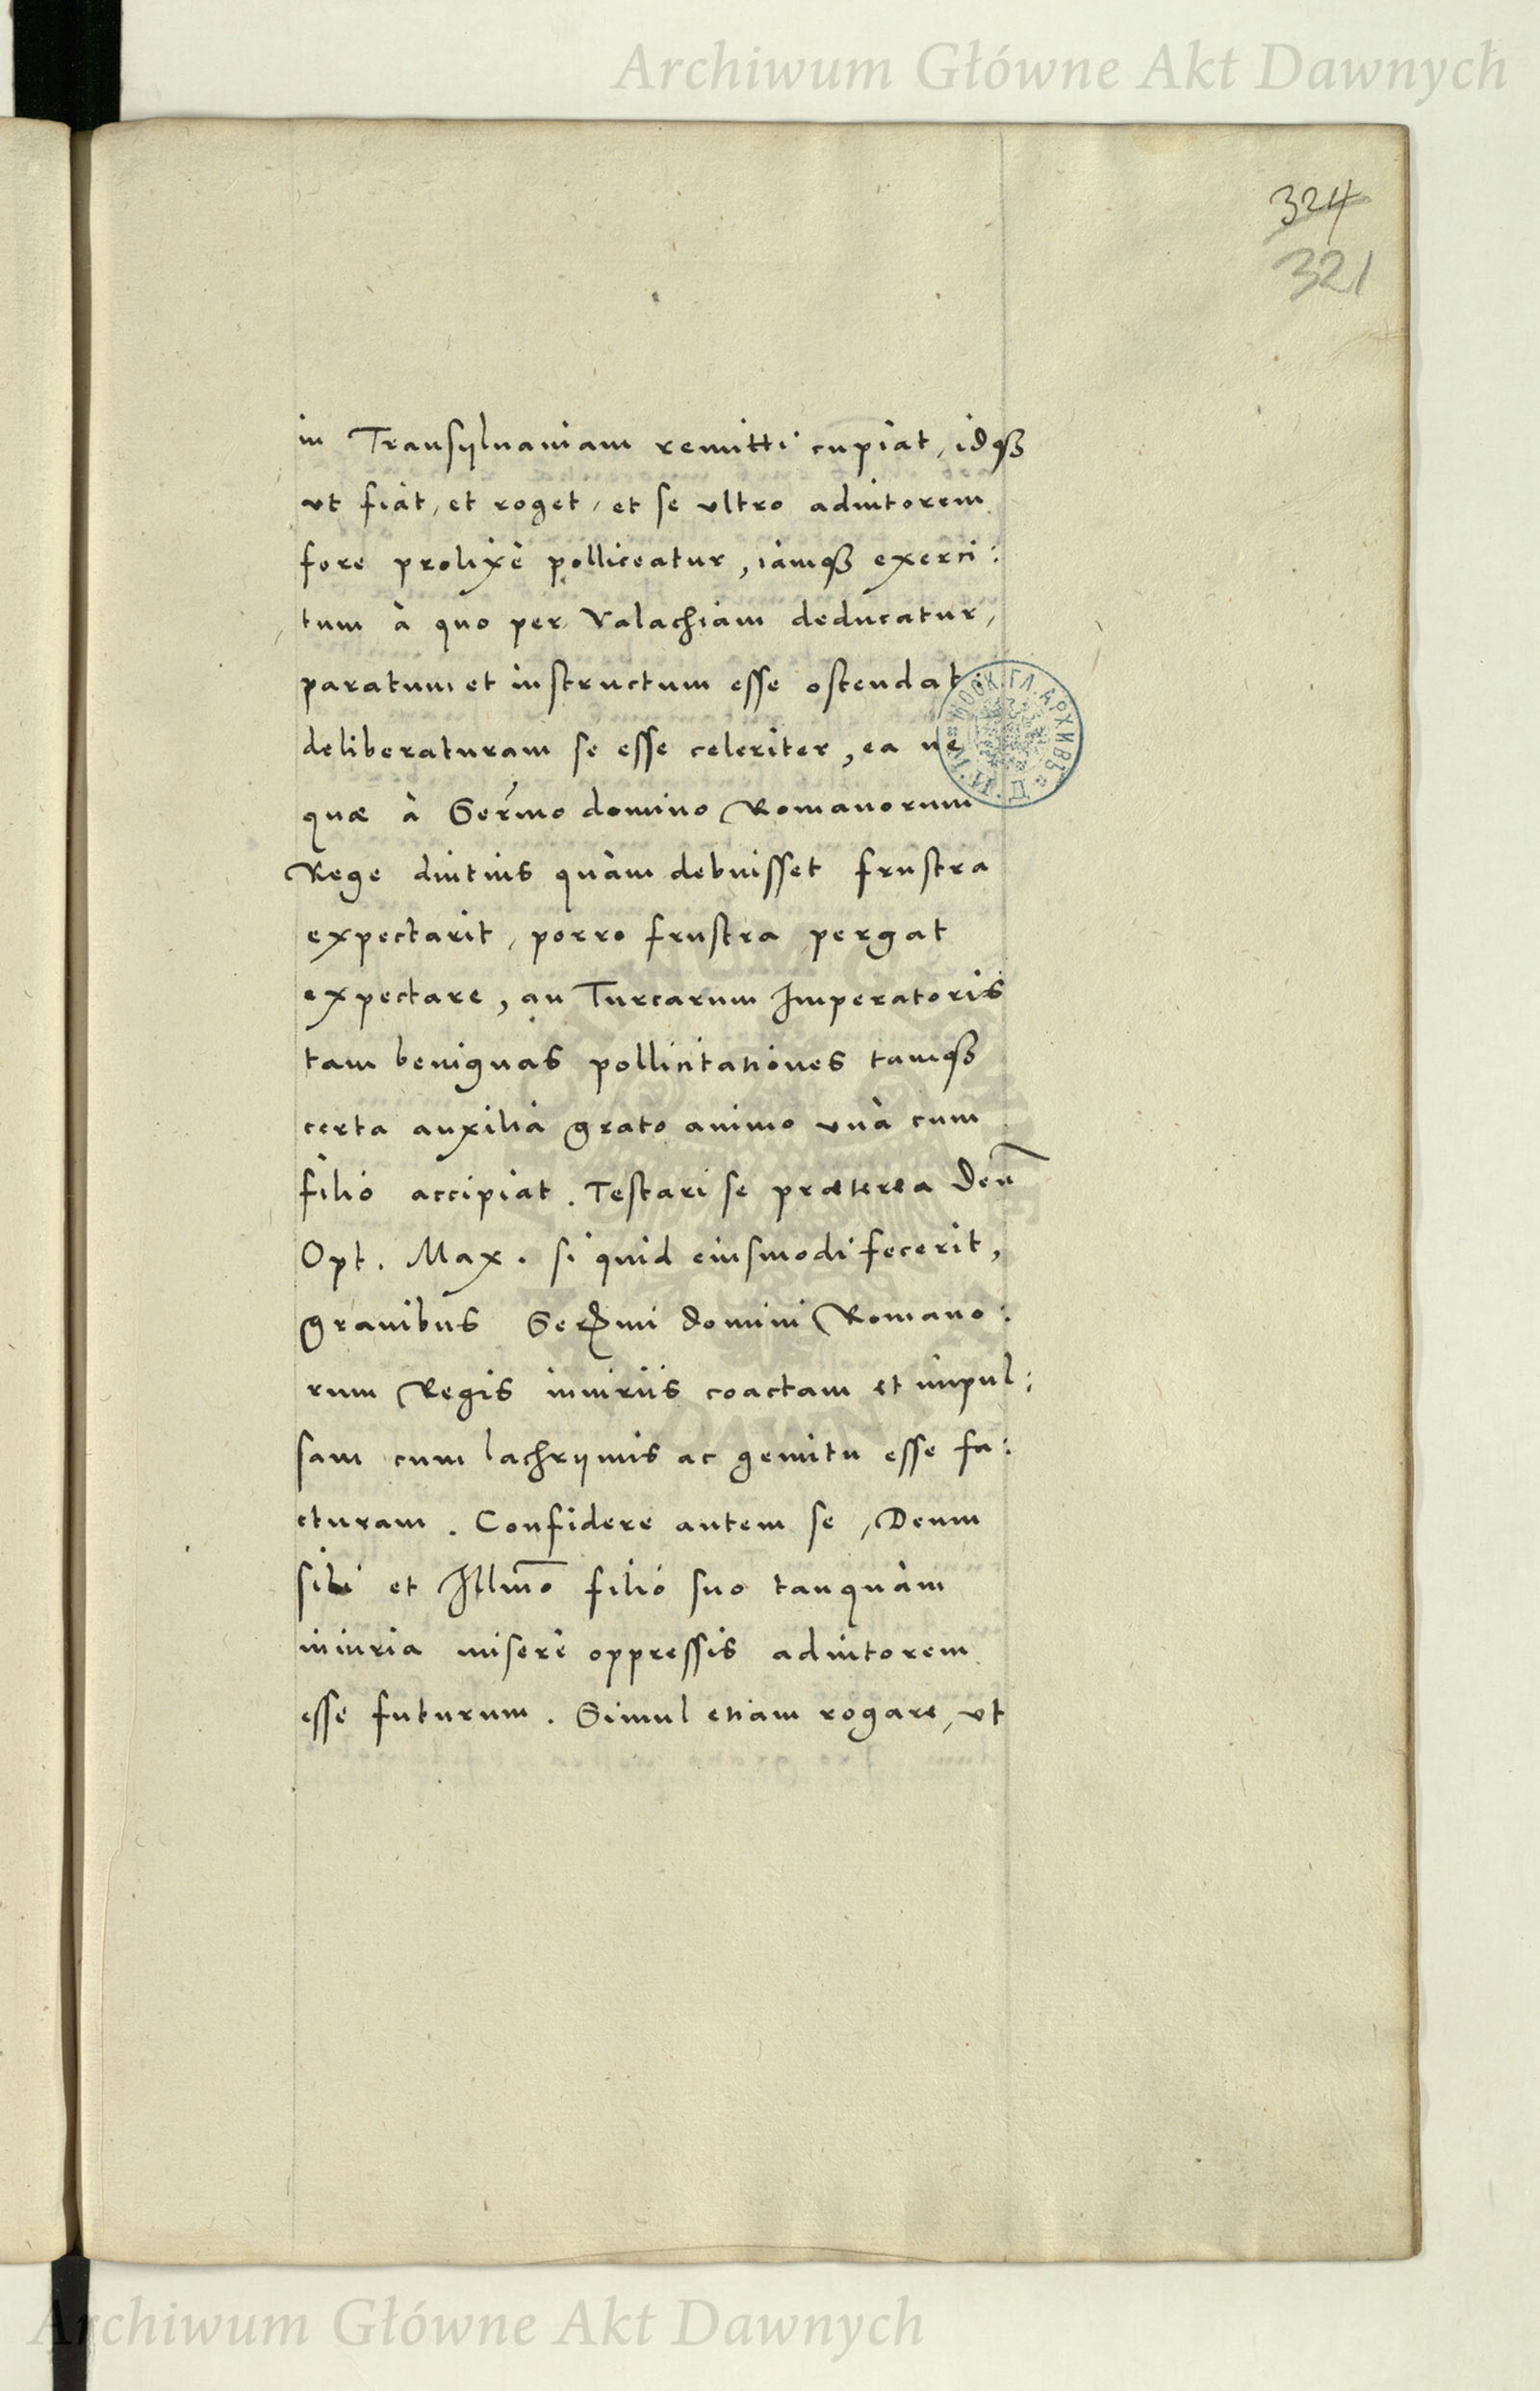 Archiwum Główne Akt Dawnych
324
321
in Transÿluaniam remitti cupiat, idqꝫ
vt fiat, et roget, et se vltro adiutorem
fore prolixè polliceatur, iamqꝫ exerci:
tum à quo per Valachiam deducatur,
paratum et instructum esse ostendat,
deliberaturam se esse celeriter, ea ne
quæ à Serm̃o domino Romanorum
Rege diutius quàm debuisset frustra
expectarit, porro frustra pergat
expectare, an Turcarum Imperatoris
tam benignas pollicitationes tamqꝫ
certa auxilia grato animo vnà cum
filio accipiat. Testari se præterea Deũ
Opt. Max. si quid eiusmodi fecerit,
grauibus Serm̃i domini Romano:
rum Regis iniuriis coactam et impul:
sam cum lachrÿmis ac gemitu esse fa:
cturam. Confidere autem se, Deum
sibi et Illm̃o filio suo tanquàm
iniuria miserè oppressis adiutorem
esse futurum. Simul etiam rogare, vt
МОСК. ГЛ. АРХИВЪ
М. И. Д.
ARCHIWUM GŁÓWNE AKT DAWNYCH
Archiwum Główne Akt Dawnych